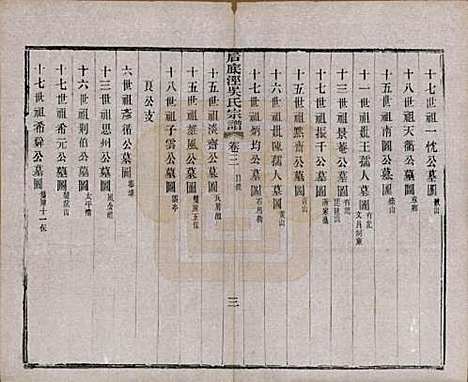 十七世祖一忱公墓圖
十八世祖天衢公墓圖
十五世祖南園公墓圖
十一世祖妣王孺人墓圖 有記
十三世祖景菴公墓圖 有記
十七世祖振千公墓圖
十五世祖熙齋公墓圖
十六世祖妣陳孺人墓圖 黄山
十七世祖炳均公墓圖 石馬橋
后底涇吳氏宗譜 卷三 目錄 三
十五世祖淡齋公墓圖
十五世祖經風公墓圖
十八世祖子雲公墓圖
良公支
六世祖彥循公墓圖
十三世祖思州公墓圖
十六世祖剡伯公墓圖 太平橋
十七世祖希元公墓圖
十七世祖希舜公墓圖